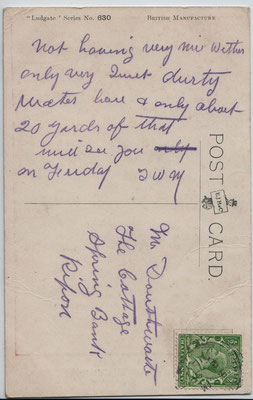 "Ludgate" Series No. 630 British Manufacture
Not having very nice wether
only very Quiet durty
water here & only about
20 yards of that
will see you only
on Friday J W M
POST CARD.
Mr Douthwaite
The Cottage
Spring Bank
Ripon